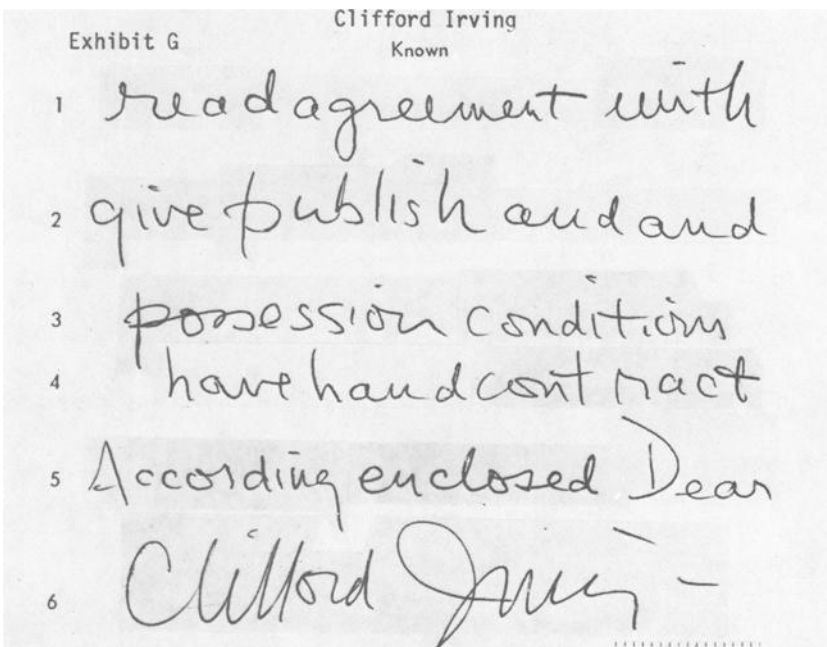 Clifford Irving
Exhibit G
Known
1 read agreement with
2 give publish and and
3 possession conditions
4 have hand contract
5 According enclosed Dear
6 Clifford Irving